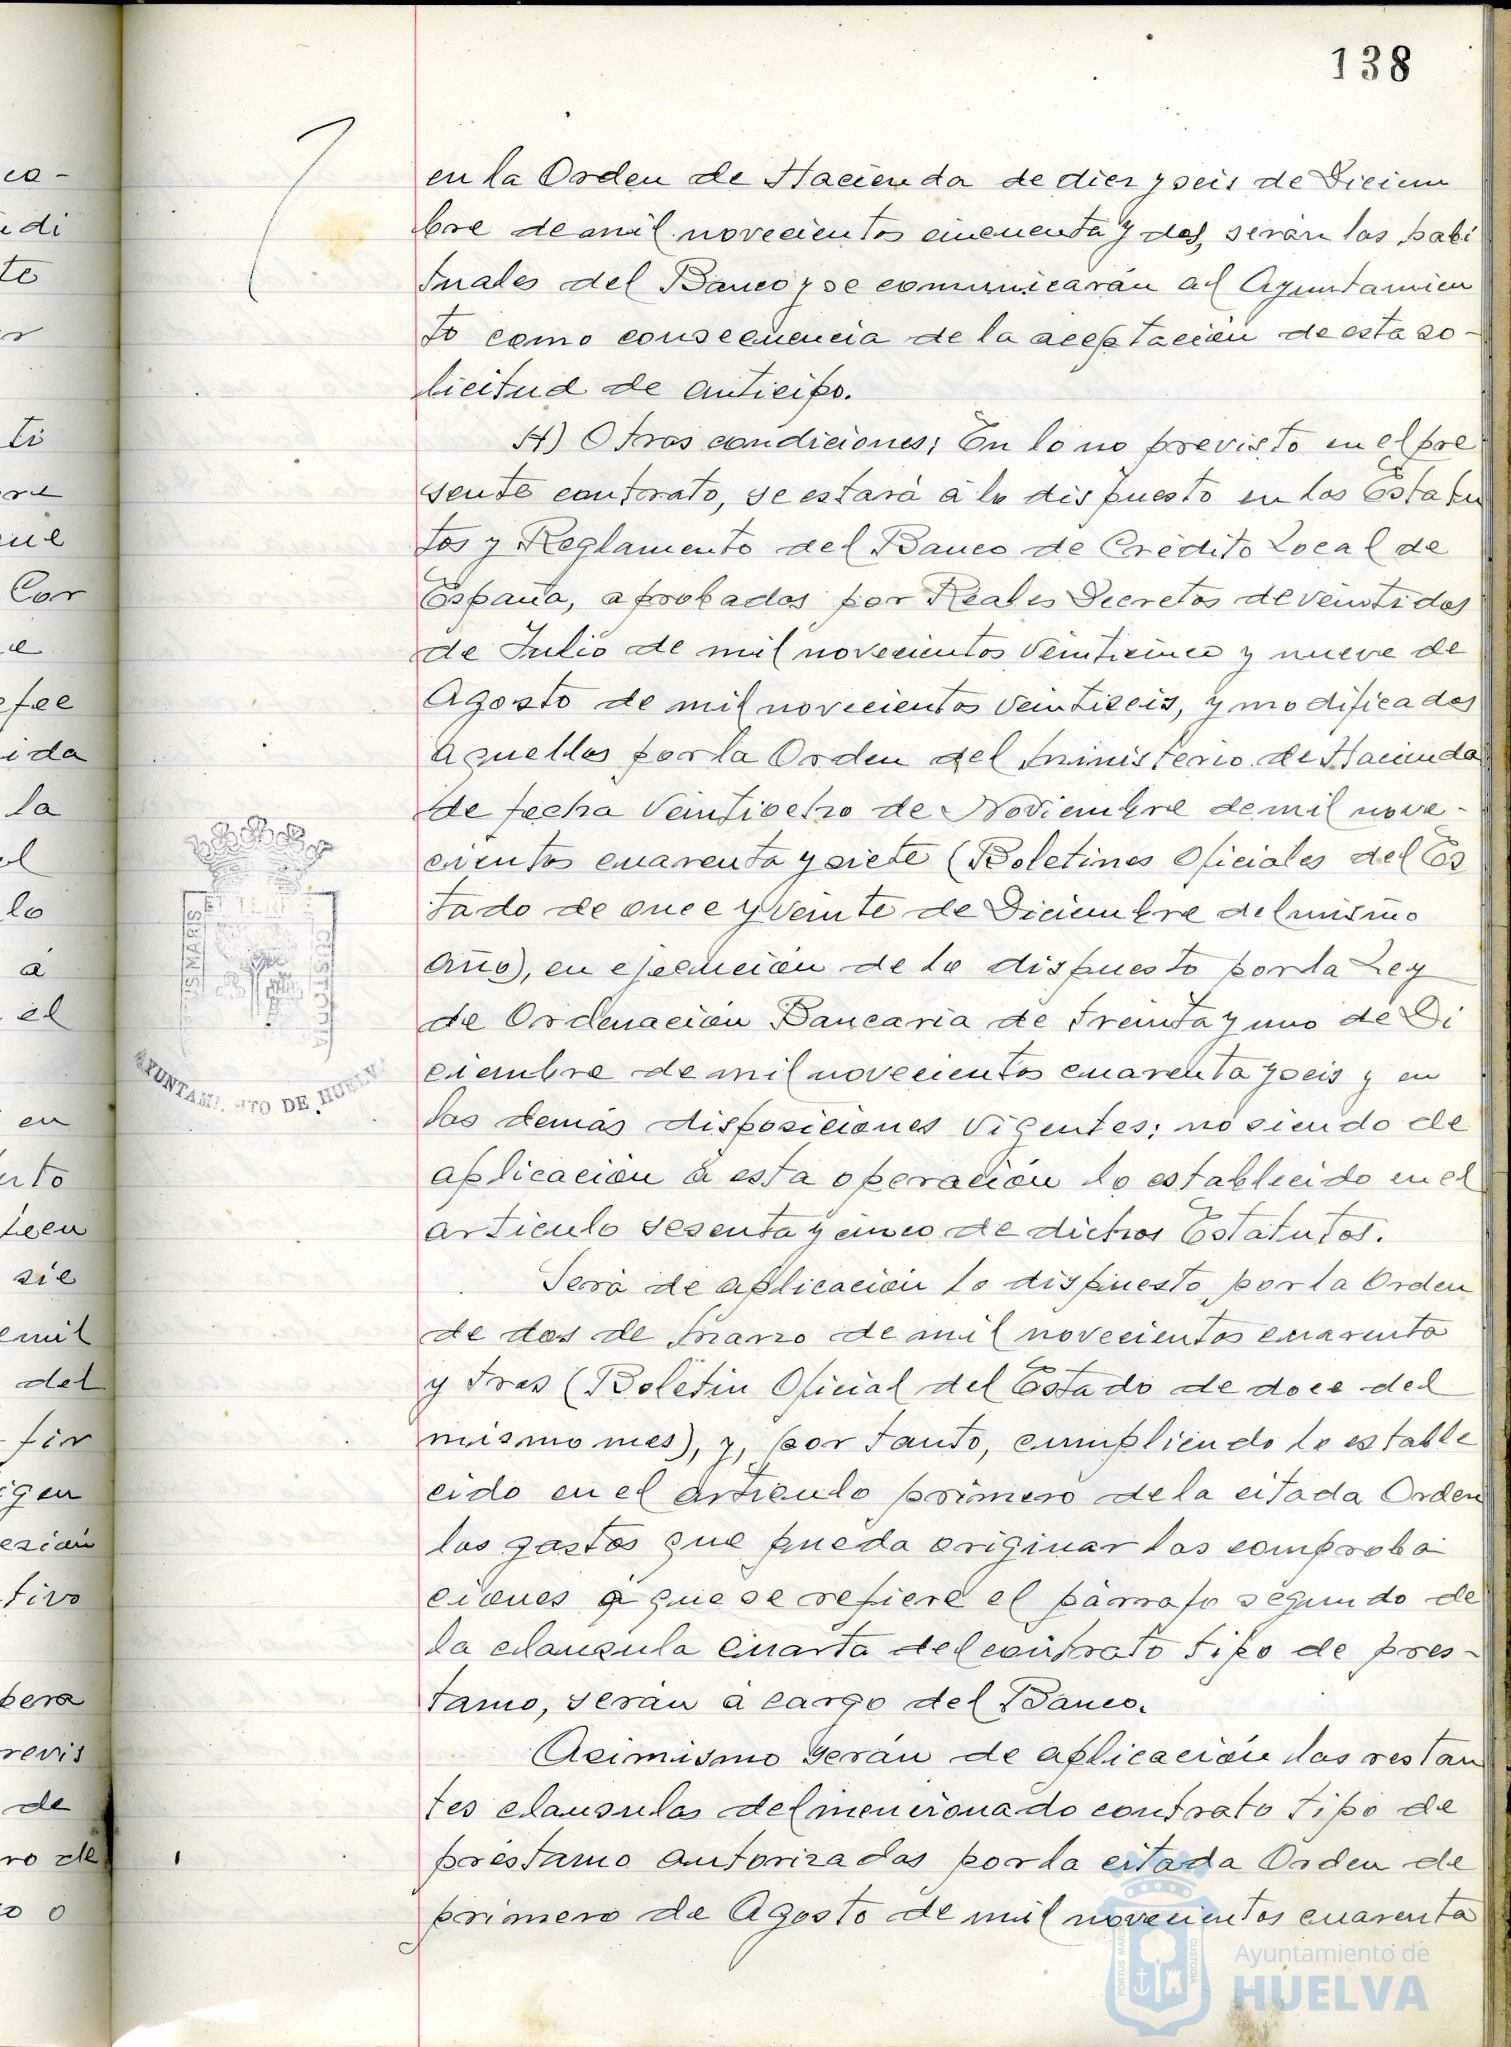 138
en la Orden de Hacienda de diez y seis de Diciem
bre de mil novecientos cincuenta y dos, serán las habi
tuales del Banco y se comunicarán al Ayuntamien
to como consecuencia de la aceptación de esta so-
licitud de anticipo.
H) Otras condiciones; En lo no previsto en el pre
sente contrato, se estará á lo dispuesto en los Estatu
tos y Reglamento del Banco de Crédito Local de
España, aprobados por Reales Decretos de veintidos
de Julio de mil novecientos veinticinco y nueve de
Agosto de mil novecientos veintiseis, y modificados
aquellos por la Orden del Ministerio de Hacienda
de fecha veintiocho de Noviembre de mil nove-
cientos cuarenta y siete (Boletines Oficiales del Es
tado de once y veinte de Diciembre del mismo
año), en ejecución de lo dispuesto por la Ley
de Ordenación Bancaria de treinta y uno de Di
ciembre de mil novecientos cuarenta y seis y en
las demás disposiciones vigentes; no siendo de
aplicación á esta operación lo establecido en el
articulo sesenta y cinco de dichos Estatutos.
Será de aplicación lo dispuesto por la Orden
de dos de Marzo de mil novecientos cuarenta
y tres (Boletin Oficial del Estado de doce del
mismo mes), y, por tanto, cumpliendo lo estable
cido en el articulo primero de la citada Orden
los gastos que pueda originar las comproba
ciones á que se refiere el párrafo segundo de
la clausula cuarta del contrato tipo de pres-
tamo, serán á cargo del Banco.
Asimismo serán de aplicación las restan
tes clausulas del mencionado contrato tipo de
préstamo autorizadas por la citada Orden de
primero de Agosto de mil novecientos cuarenta
AYUNTAMI NTO DE HUELVA
Ayuntamiento de
HUELVA